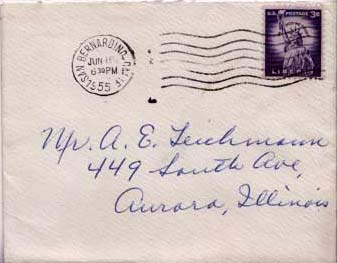 SAN BERNARDINO, CALIF.
JUN
6 30 PM
1955
U.S. POSTAGE 3¢
LIBERTY
Mr. A. E. Teichmann
449 South Ave,
Aurora, Illinois